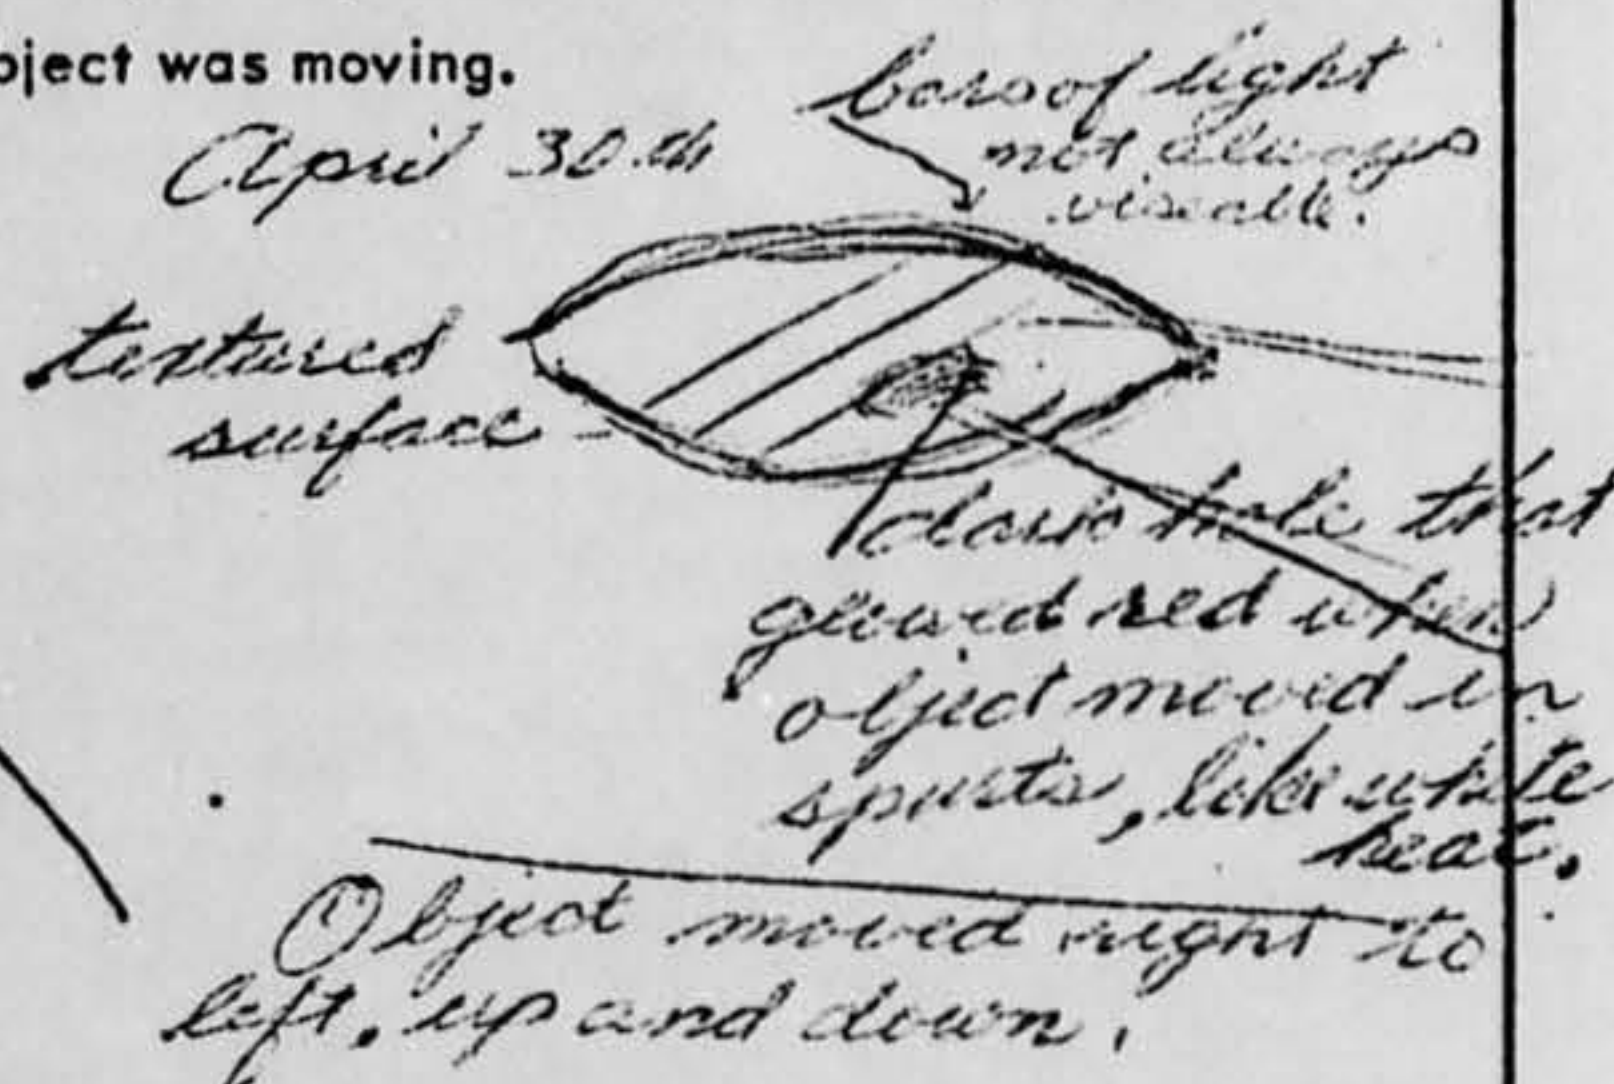 bject was moving.
April 30th
bars of light
not always
viseable.
textured
surface
dark hole that
glowed red when
object moved in
spurts, like white
heat.
Object moved right to
left, up and down.